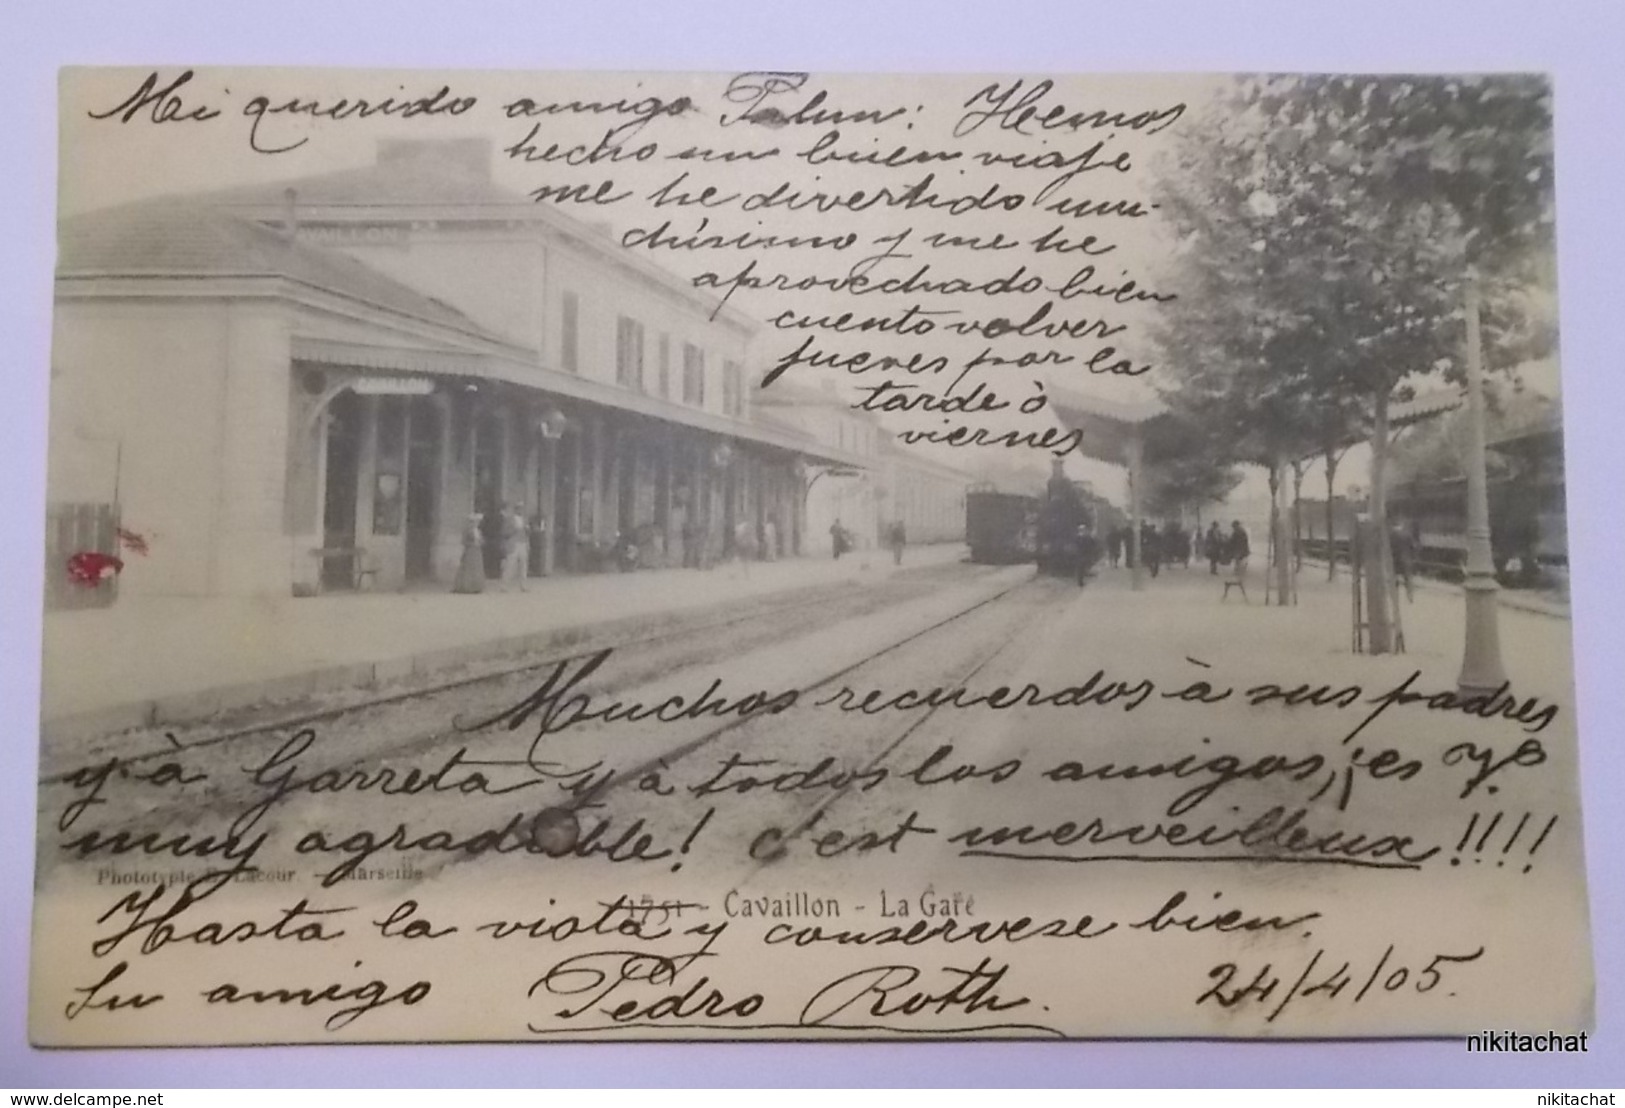 Mi querido amigo Palun: Hemos
hecho un buen viaje
me he divertido mu-
chisismo y me he
aprovechado bien
cuento volver
jueves por la
tarde ò
viernes
AVAILLON
CAVAILLON
Muchos recuerdos à sus padres
y à Garreta y à todos los amigos, ¡es
muy agradable! c'est merveilleux!!!!
Phototypie E. Lacour. - Marseille
1751 - Cavaillon - La Gare
Hasta la vista y conservese bien.
Su amigo Pedro Roth. 24/4/05.
nikitachat
www.delcampe.net
nikitachat